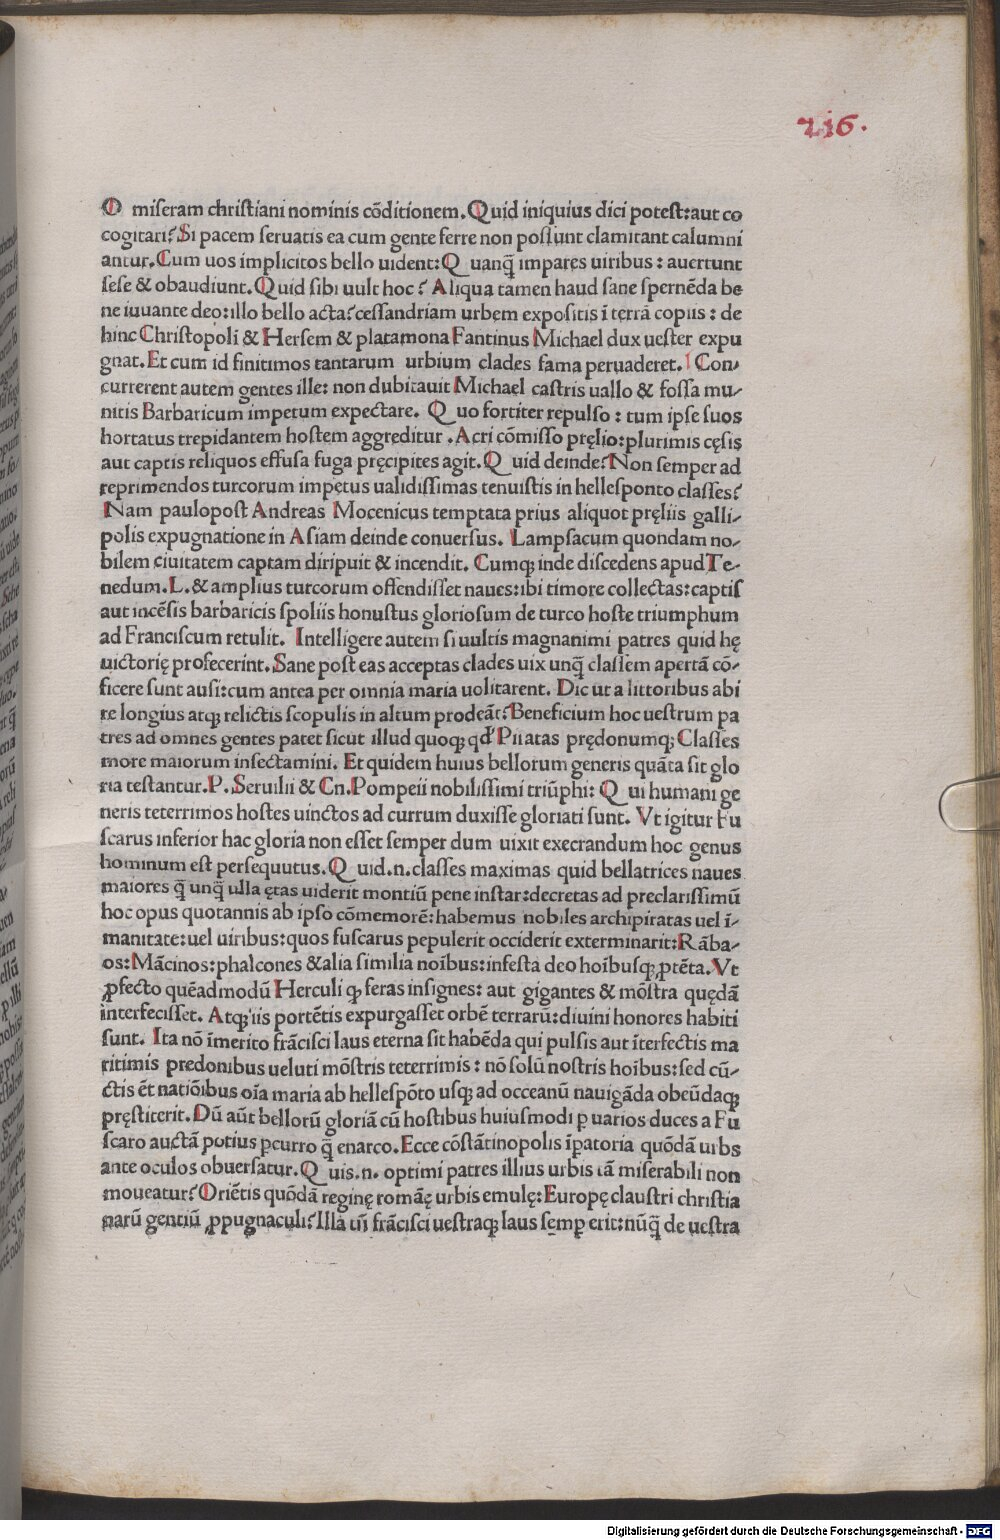 216.
O miseram christiani nominis cōditionem. Quid iniquius dici potest: aut co
cogitari? Si pacem seruatis ea cum gente ferre non possunt clamitant calumni
antur. Cum uos implicitos bello uident: Quanq̄ impares uiribus: auertunt
sese & obaudiunt. Quid sibi uult hoc? Aliqua tamen haud sane spernēda be
ne iuuante deo: illo bello acta? cessandriam urbem expositis ī terrā copiis: de
hinc Christopoli & Hersem & platamona Fantinus Michael dux uester expu
gnat. Et cum id finitimos tantarum urbium clades fama peruaderet. Con-
currerent autem gentes ille: non dubitauit Michael castris uallo & fossa mu-
nitis Barbaricum impetum expectare. Quo fortiter repulso: tum ipse suos
hortatus trepidantem hostem aggreditur. Acri cōmisso pręlio: plurimis cęsis
aut captis reliquos effusa fuga pręcipites agit. Quid deinde? Non semper ad
reprimendos turcorum impetus ualidissimas tenuistis in hellesponto classes?
Nam paulopost Andreas Mocenicus temptata prius aliquot pręliis galli-
polis expugnatione in Asiam deinde conuersus. Lampsacum quondam no-
bilem ciuitatem captam diripuit & incendit. Cumq; inde discedens apud Te-
nedum. L. & amplius turcorum offendisset naues: ibi timore collectas: captis
aut incēsis barbaricis spoliis honustus gloriosum de turco hoste triumphum
ad Franciscum retulit. Intelligere autem si uultis magnanimi patres quid hę
uictorię profecerint. Sane post eas acceptas clades uix unq̄ classem apertā cō-
ficere sunt ausi: cum antea per omnia maria uolitarent. Dic ut a littoribus abi
re longius atq; relictis scopulis in altum prodeāt? Beneficium hoc uestrum pa
tres ad omnes gentes patet sicut illud quoq; qđ Piratas prędonumq; Classes
more maiorum insectamini. Et quidem huius bellorum generis quāta sit glo
ria testantur. P. Seruilii & Cn. Pompeii nobilissimi triūphi: Qui humani ge
neris teterrimos hostes uinctos ad currum duxisse gloriati sunt. Vt igitur Fu
scarus inferior hac gloria non esset semper dum uixit execrandum hoc genus
hominum est persequutus. Quid .n. classes maximas quid bellatrices naues
maiores q̄ unq̄ ulla ętas uiderit montiū pene instar: decretas ad preclarissimū
hoc opus quotannis ab ipso cōmemorē: habemus nobiles archipiratas uel ī-
manitate: uel uiribus: quos fuscarus pepulerit occiderit exterminarit: Rāba-
os: Mācinos: phalcones & alia similia noībus: infesta deo hoībusq; ꝓtēta. Vt
ꝓfecto quēadmodū Herculi ꝙ feras insignes: aut gigantes & mōstra quędā
interfecisset. Atq; iis portētis expurgasset orbē terrarū: diuini honores habiti
sunt. Ita nō īmerito frācisci laus eterna sit habēda qui pulsis aut īterfectis ma
ritimis predonibus ueluti mōstris teterrimis: nō solū nostris hoībus: sed cū-
ctis ēt natiōibus oīa maria ab hellespōto usq; ad occeanū nauigāda obeūdaq;
pręstiterit. Dū aūt bellorū gloriā cū hostibus huiusmodi ꝑ uarios duces a Fu
scaro auctā potius ꝑcurro q̄ enarco. Ecce cōstātinopolis īpatoria quōdā urbs
ante oculos obuersatur. Quis .n. optimi patres illius urbis tā miserabili non
moueatur? Oriētis quōdā reginę romāę urbis emulę: Europę claustri christia
narū gentiū ꝓpugnaculi? Illa tn̄ frācisci uestraq; laus semꝑ erit: nūq̄ de uestra
Digitalisierung gefördert durch die Deutsche Forschungsgemeinschaft - DFG